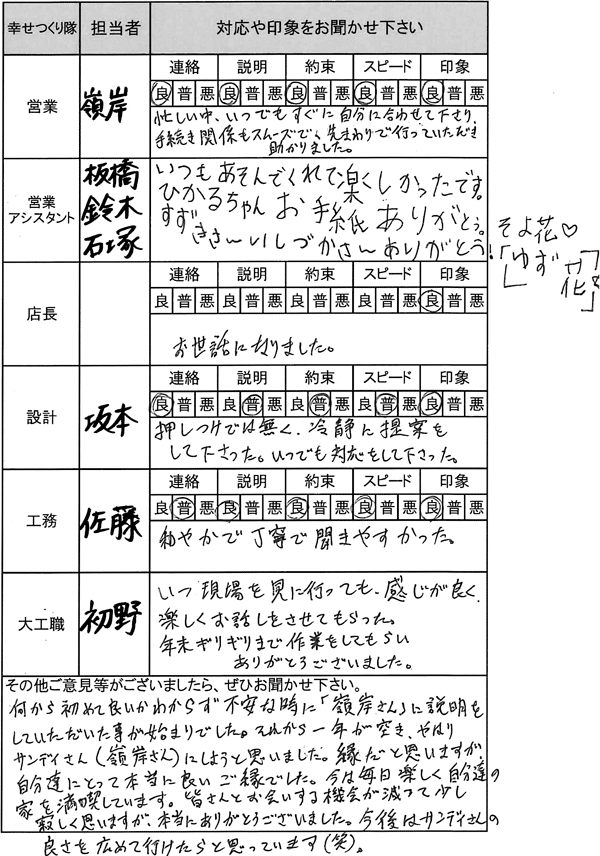 幸せつくり隊 担当者 対応や印象をお聞かせ下さい
営業 嶺岸
連絡 説明 約束 スピード 印象
良 普 悪 良 普 悪 良 普 悪 良 普 悪 良 普 悪
忙しい中、いつでもすぐに自分に合わせて下さり、
手続き関係もスムーズで、先まわりで行っていただき
助かりました。
営業アシスタント 板橋 鈴木 石塚
いつもあそんでくれて楽しかったです。
ひかるちゃん お手紙 ありがとう。
すずきさーん いしづかさん ありがとう!
そよ花♡
「ゆず花」
店長
連絡 説明 約束 スピード 印象
良 普 悪 良 普 悪 良 普 悪 良 普 悪 良 普 悪
お世話になりました。
設計 坂本
連絡 説明 約束 スピード 印象
良 普 悪 良 普 悪 良 普 悪 良 普 悪 良 普 悪
押しつけでは無く、冷静に提案を
して下さった。いつでも対応をして下さった。
工務 佐藤
連絡 説明 約束 スピード 印象
良 普 悪 良 普 悪 良 普 悪 良 普 悪 良 普 悪
和やかで丁寧で聞きやすかった。
大工職 初野
いつ現場を見に行っても、感じが良く、
楽しくお話しをさせてもらった。
年末ギリギリまで作業をしてもらい
ありがとうございました。
その他ご意見等がございましたら、ぜひお聞かせ下さい。
何から初めて良いかわからず不安な時に「嶺岸さん」に説明を
していただいた事が始まりでした。それから一年が空き、やはり
サンデイさん(嶺岸さん)にしようと思いました。縁だと思いますが、
自分達にとって本当に良いご縁でした。今は毎日楽しく自分達の
家を満喫しています。皆さんとお会いする機会が減って少し
寂しく思いますが、本当にありがとうございました。今後はサンデイさんの
良さを広めて行けたらと思っています(笑)。